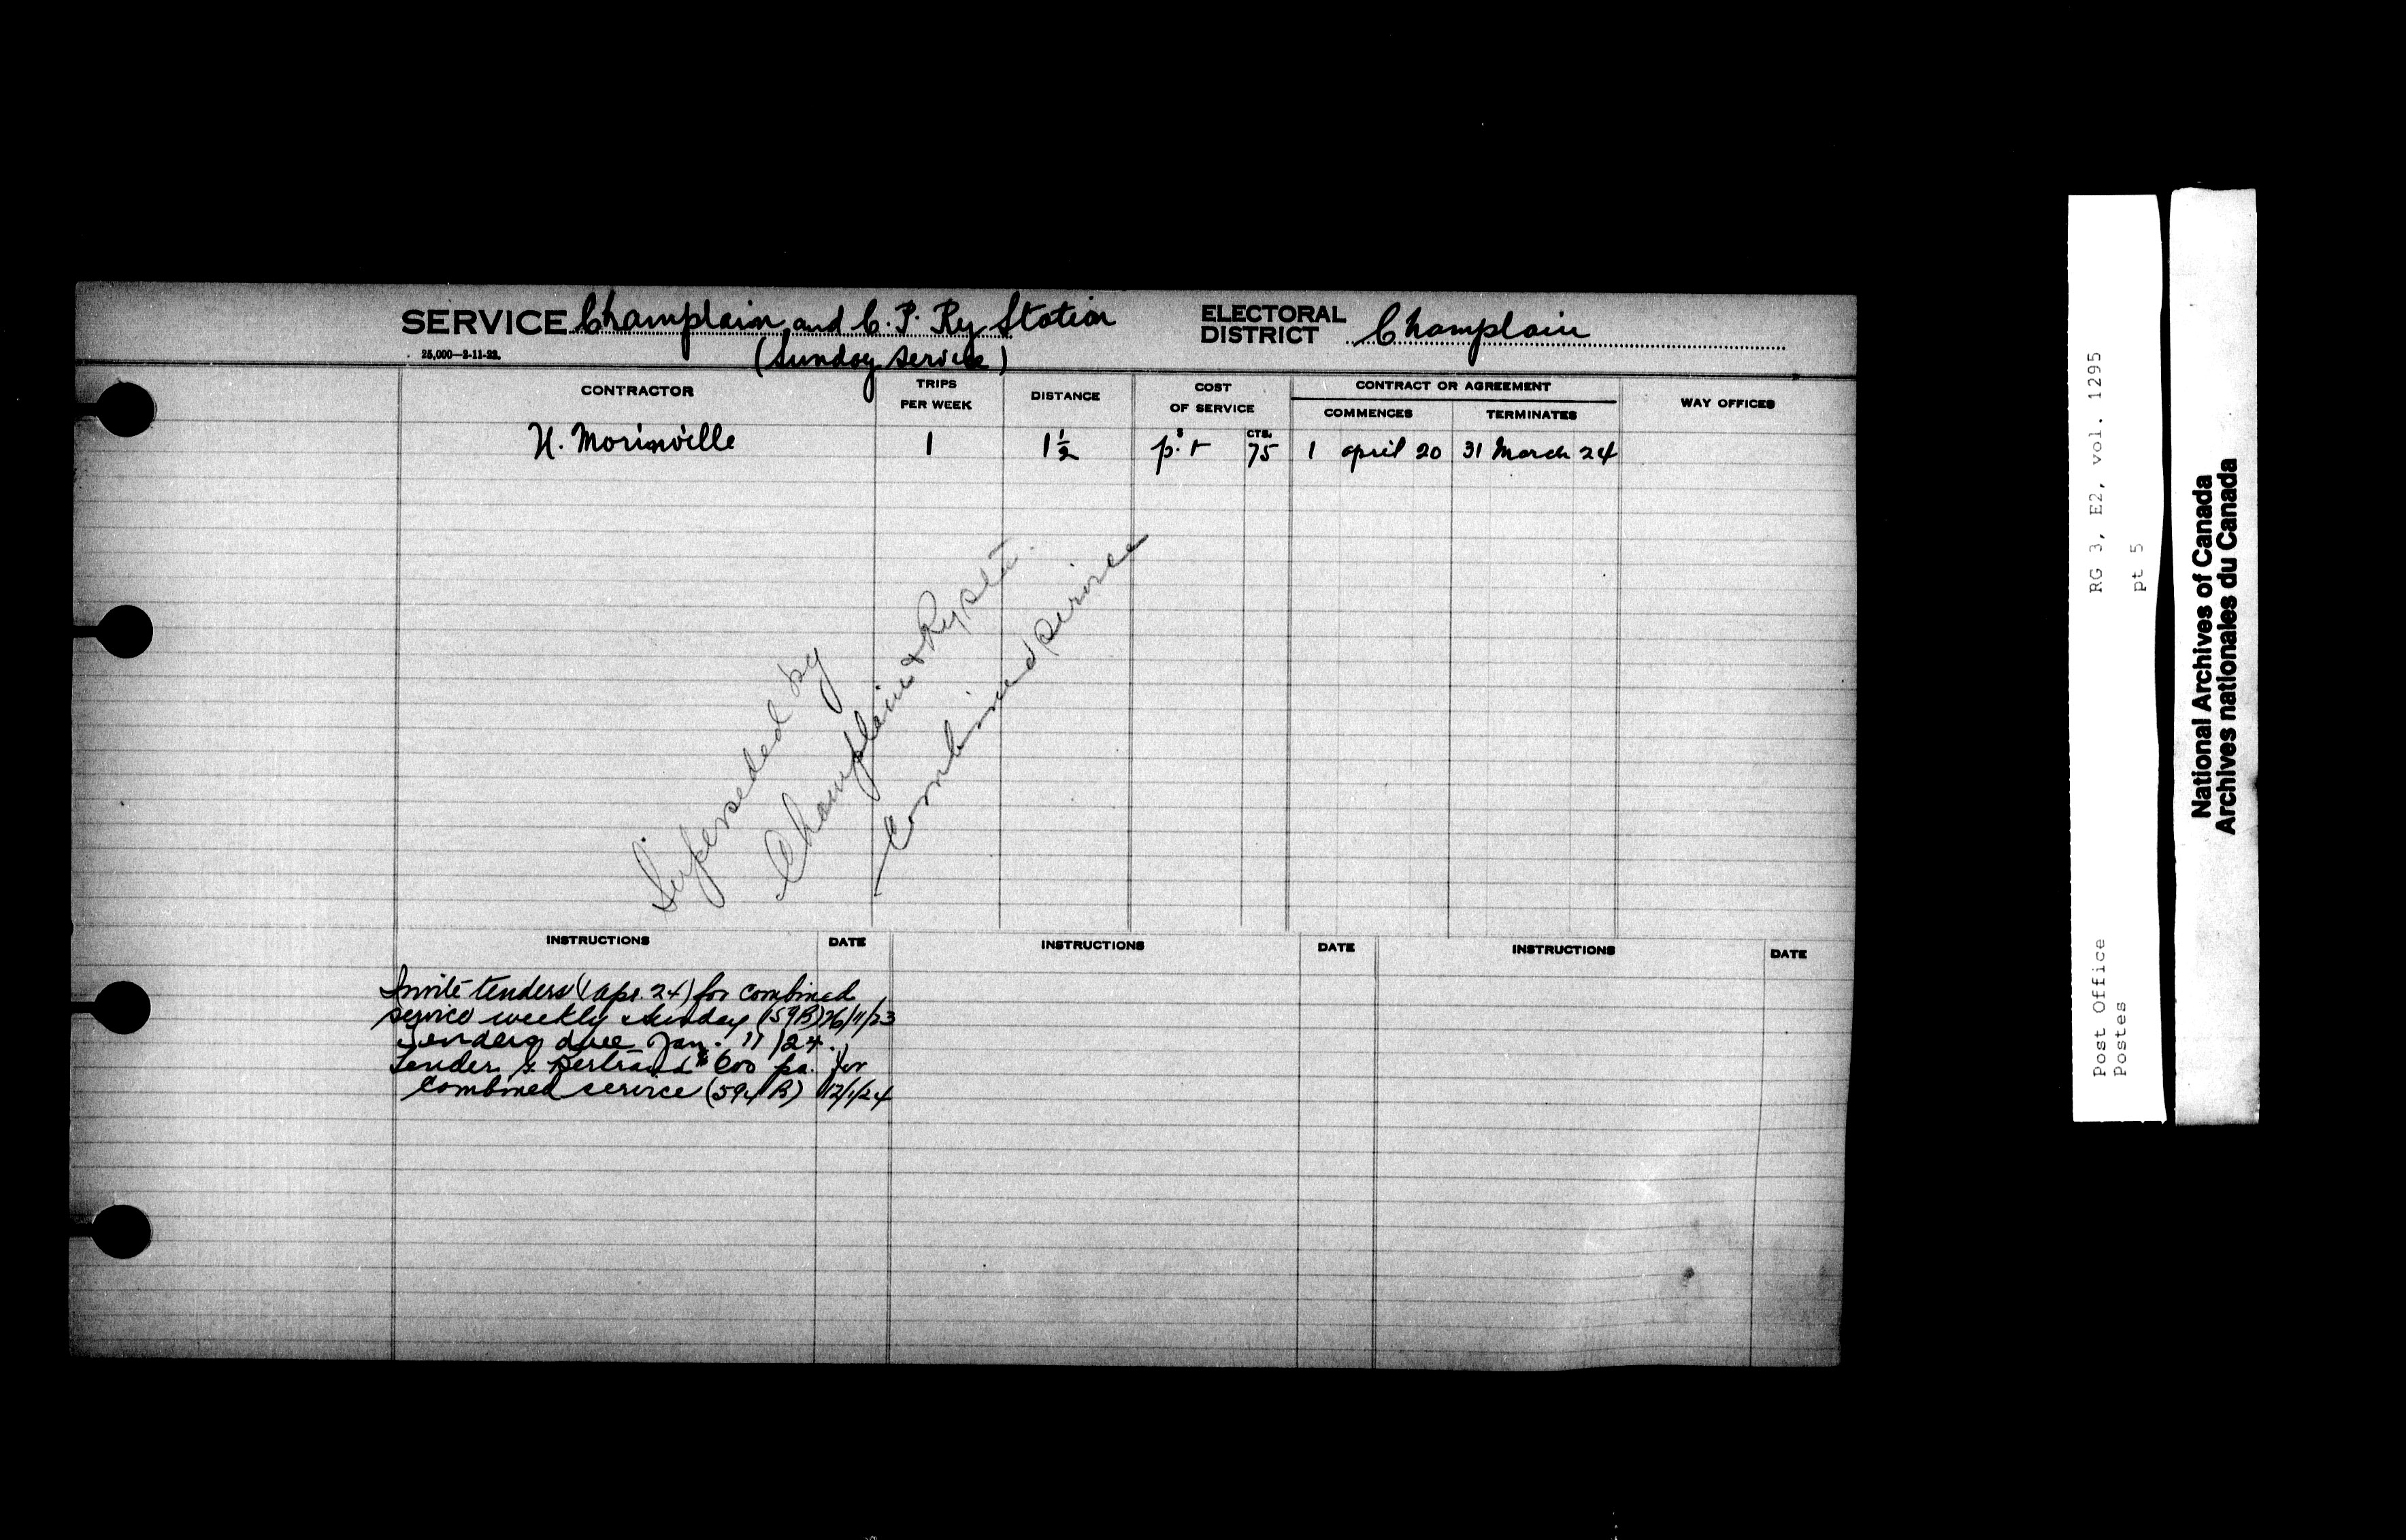 SERVICE Champlain and C. P. Ry Station
(Sunday service)
25,000—2-11-22.
ELECTORAL DISTRICT Champlain
CONTRACTOR
TRIPS PER WEEK
DISTANCE
COST OF SERVICE
CONTRACT OR AGREEMENT
COMMENCES
TERMINATES
WAY OFFICES
$ CTS.
H. Morinville 1 1½ p.t 75 1 April 20 31 March 24
Superseded by
Champlain & Ry Stn.
Combined service
INSTRUCTIONS DATE INSTRUCTIONS DATE INSTRUCTIONS DATE
Invite tenders (1 Apr. 24) for combined
service weekly & Sunday (159B) 26/11/23
Tenders due Jan. 11/24.
Tender Bertrand $600 pa. for
combined service (594 B) 12/1/24
RG 3, E2, vol. 1295
pt 5
Post Office
Postes
National Archives of Canada
Archives nationales du Canada